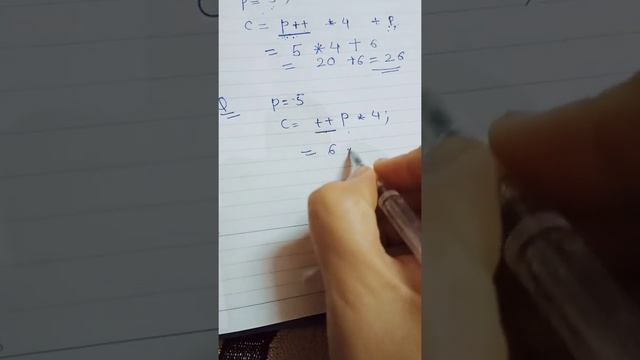 p = 5;
C = p++ * 4 + p;
= 5 * 4 + 6
= 20 + 6 = 26
p = 5
C = ++ p * 4;
= 6